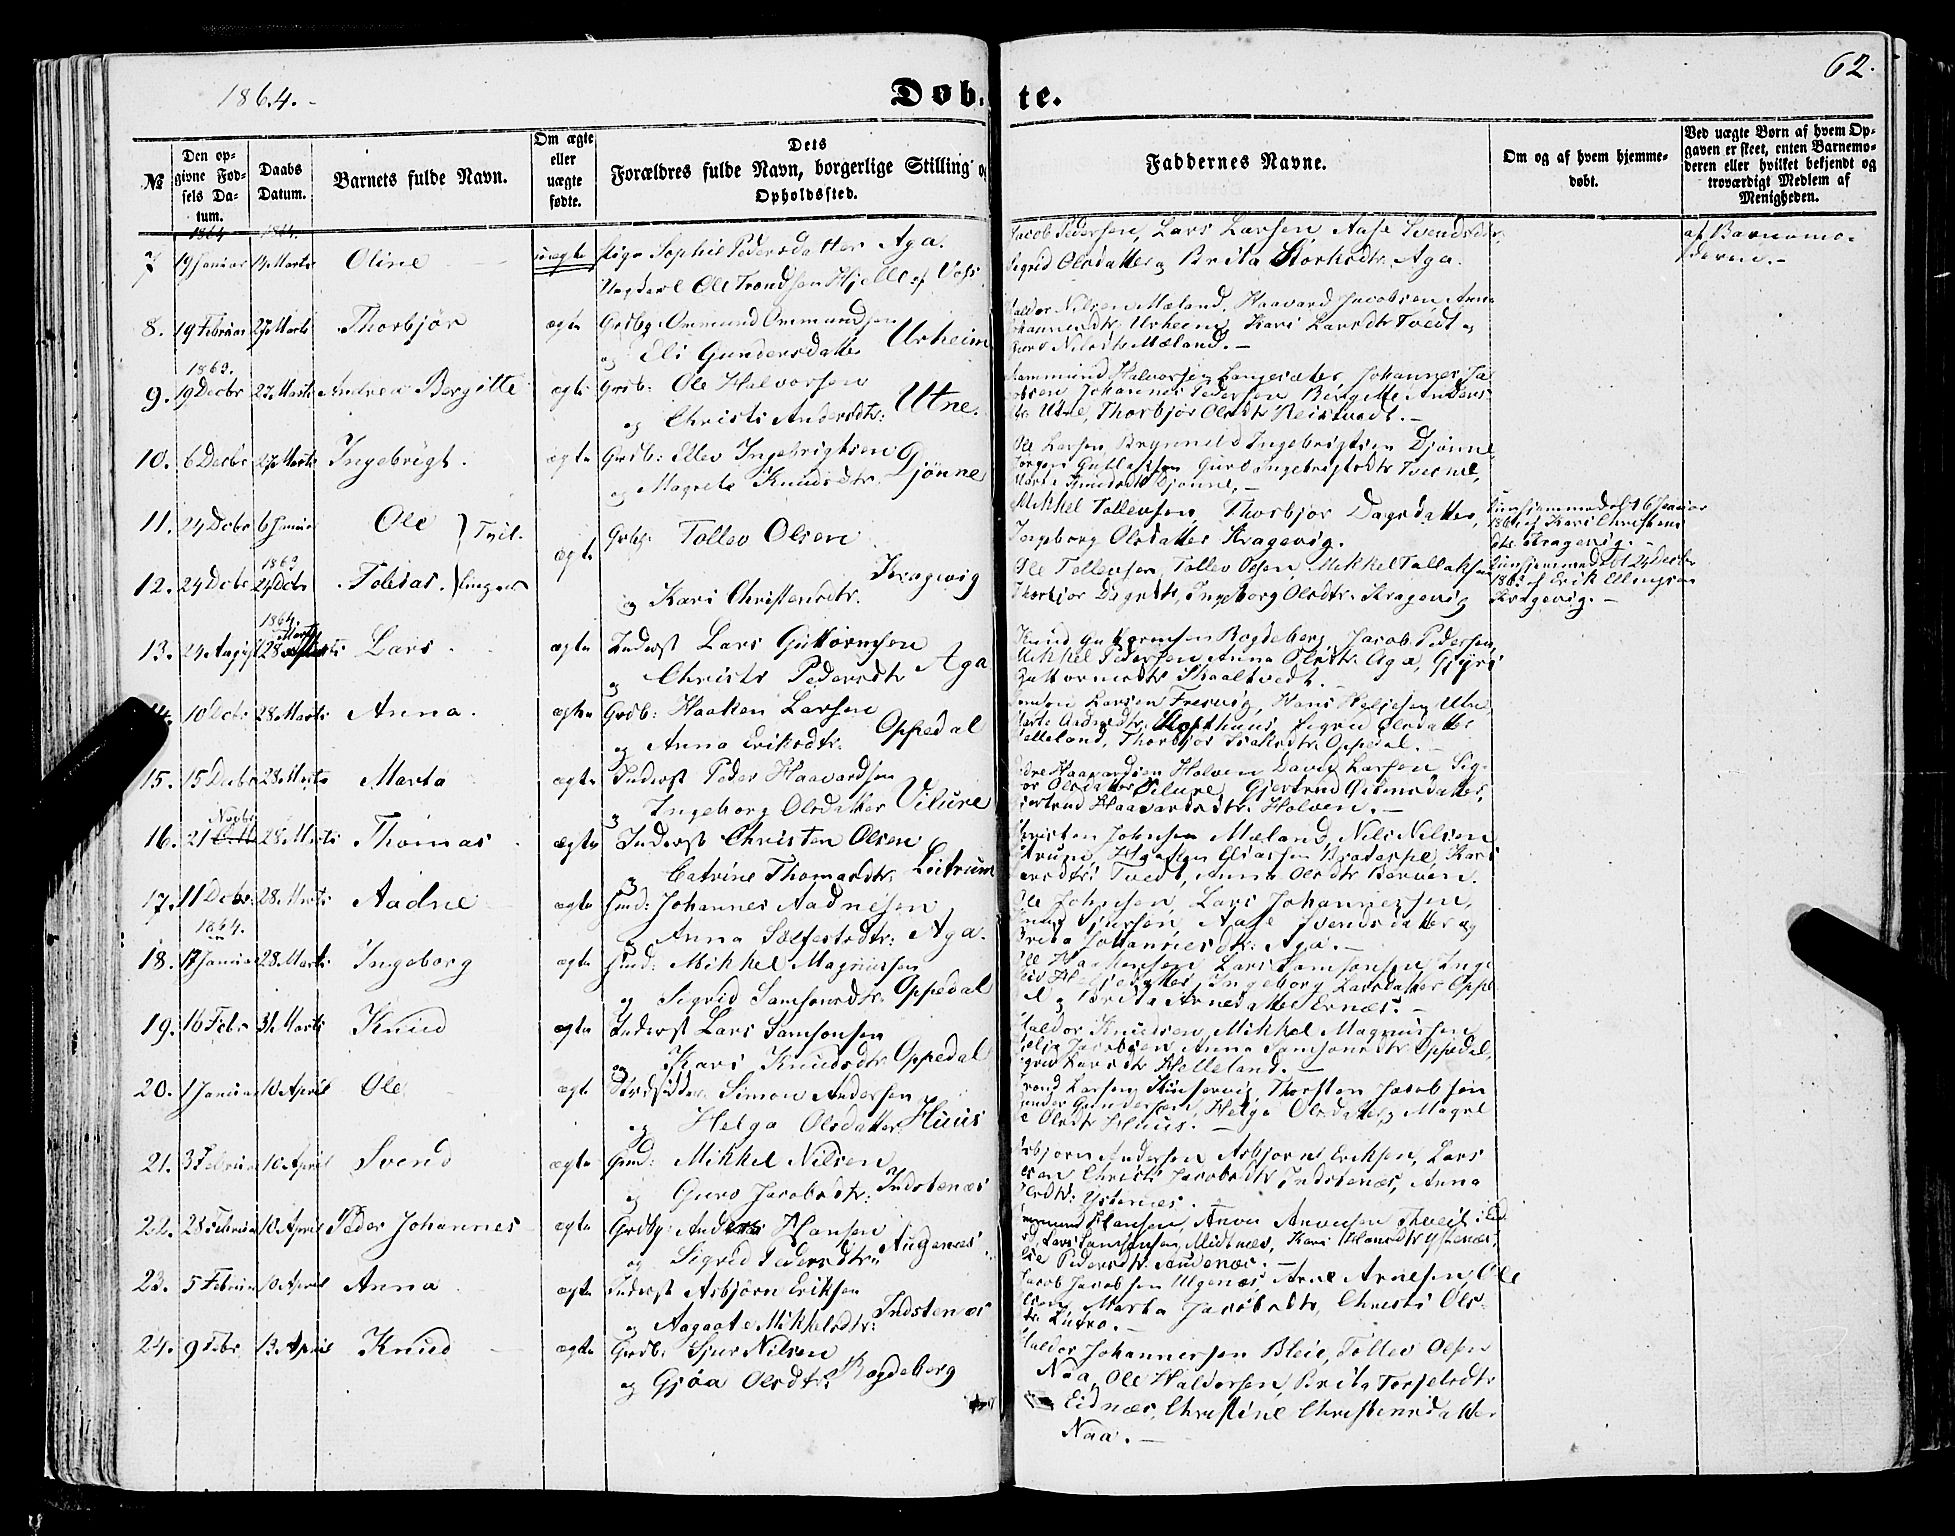 1864.
Døb-te.
62.
№
Den opgivne Fødsels Datum.
Daabs Datum.
Barnets fulde Navn.
Om ægte eller uægte fødte.
Dets Forældres fulde Navn, borgerlige Stilling og Opholdssted.
Faddernes Navne.
Om og af hvem hjemmedøbt.
Ved uægte Børn af hvem Opgaven er skeet, enten Barnemoderen eller hvilket bekjendt og troværdigt Medlem af Menigheden.
1864 1864.
7 19 Januar 13 Marts Oline uægte Pige Sophie Pedersdatter Aga.
Ole Trondsen Hjelle af Voss.
Jacob Pedersen, Lars Larsen, Aase Svendsdtr,
Sigrid Olsdatter og Brita Aga.
af Barnemo-
deren.-
8. 19 Februar 27 Marts Thorbjør ægte Grdbg: Ommund Ommundsen
og Eli Gundersdatter Urheim
Haldor Nilsen Mæland, Haavard Jacobsen, Anna
Johannesdtr. Urheim, Kari Larsdtr Tvedt og
Guro Nilsdtr Mæland.-
1863.
9. 19 Decbr 27 Marts Andrea Bergitte ægte Grdb: Ole Halvorsen
og Christi Andersdtr: Utne.
Halvorsen Langesæter, Johannes Ja-
cobsen, Johannes Pedersen, Birgitte Anders-
dtr Utne, Thorbjør Olsdtr Reisetvedt.-
10. 6 Decbr 27 Marts Ingebrigt. ægte Grdb: Ellev Ingebrigtsen
og Magrete Knudsdtr. Djønne
Ole Larsen, Brynild Ingebrigtsen Djønne
Guro Ingebrigtsdtr Tveisme,
Marta Knudsdtr Djønne,-
11. 24 Decbr 6 Januar Ole } Tvil-
ægte Grbg: Tollev Olsen
Mikkel Tollevsen, Thorbjør Dagsdatter,
Ingeborg Olsdatter Kragevig.
hjemmedøbt 6 Januar
1864 af Kari Christens-
dtr. Kragevig.-
1863
12. 24 Decbr 24 Decbr Tobias. } linger
og Kari Christensdtr. Kragevig
Ole Tollevsen, Tollev Olsen, Mikkel Tollaksen
Thorbjør Dagsdtr, Ingeborg Olsdtr. Kragevig
hjemmedøbt 24 Decbr
1863 af Erik Ellingsen
Kragevig.-
1864.
13. 24 August 28 Marts Lars ægte Inderst Lars Guttormsen
og Christi Pedersdtr Aga
Knud Guttormsen Rogdeberg, Jacob Pedersen,
Mikkel Pedersen, Anna Olsdtr. Aga, Gjyri
Guttormsdtr Skaaltvedt.
10 Decbr 28 Marts Anna. ægte Grdb: Haaken Larsen
og Anna Eriksdtr. Oppedal
Larsen Fresvig, Hans Utne,
Marta Lofthuus, Sigrid Olsdatter
Helleland, Thorbjør Isaksdtr. Oppedal.-
15. 15 Decbr 28 Marts Marta ægte Inderst Peder Haavardsen
og Ingeborg Olsdatter Vilure
Haavardsen Holven, David Larsen, Sig-
Olsdatter Vilure, Gjertrud
Gjertrud Haavardsdtr. Holven.-
Novbr
16. 21 28 Marts Thomas ægte Inderst Christen Olsen
og Catrine Thomasdtr. Leitrum
Christen Johnsen Mæland, Nils Nilsen
Haaken Eliassen Bratespe, Kari
Tvedt, Anna Olsdtr Berven.
17. 11 Decbr: 28 Marts Aadne ægte Huusd: Johannes Aadnesen
og Anna Sølfestsdtr: Aga.
Ole Johnsen, Lars Johannessen,
Knud Sjursen, Aase Svendsdatter og
Brita Johannesdtr. Aga.-
1864.
18. 17 Januar 28 Marts Ingeborg ægte Huusd: Mikkel Magnussen
og Sigrid Samsonsdtr. Oppedal
Ole Haakensen, Lars Samsonsen, Inge-
Ingeborg Larsdatter Oppe-
dal og Brita Arnesdatter Ernæs.-
19. 16 Febr 31 Marts Knud ægte Inderst Lars Samsonsen
og Kari Knudsdtr Oppedal
Haldor Knudsen, Mikkel Magnussen
Jacobsen, Anna Samsonsdtr Oppedal,
Sigrid Larsdtr Helleland.-
20. 1 Januar 10 April Ole ægte Simon Andersen
og Helga Olsdatter Huus
Trond Larsen Kinservig, Thorsten Jacobsen
Gunder Gundersen, Helga Olsdatter, Magre-
te Olsdtr Huus.-
21. 3 Februar 10 April Svend ægte Huusd: Mikkel Nilsen
og Guro Jacobsdtr: Indstenæs
Asbjørn Andersen, Asbjørn Eriksen, Lars
Christi Jacobsdtr Indstenæs, Anna
Ystenæs.-
22. 28 Februar 10 April Peder Johannes ægte Grdbg: Anders Hansen
og Sigrid Pedersdtr: Augenæs.
Hansen, Anve Anvesen Thveit i Eid-
Lars Samsonsen Midtnæs, Kari Hansdtr Ystenæs,
Pedersdtr. Audenæs.-
23. 5 Februar 10 April Anna ægte Inderst Asbjørn Eriksen
og Aagaate Mikkelsdtr: Indstenæs
Jacob Jacobsen Ulgenæs, Arne Arnesen, Ole
Marta Jacobsdtr, Christi Ols-
dtr. Lutro.-
24. 9 Febr 13 April Knud ægte Grdb: Sjur Nilsen
og Gjøa Olsdtr: Rogdeberg
Haldor Johannessen Bleie, Tollev Olsen
Naa, Ole Haldorsen, Brita Torjelsdtr
Eidnæs, Christine Christensdatter
Naa.-